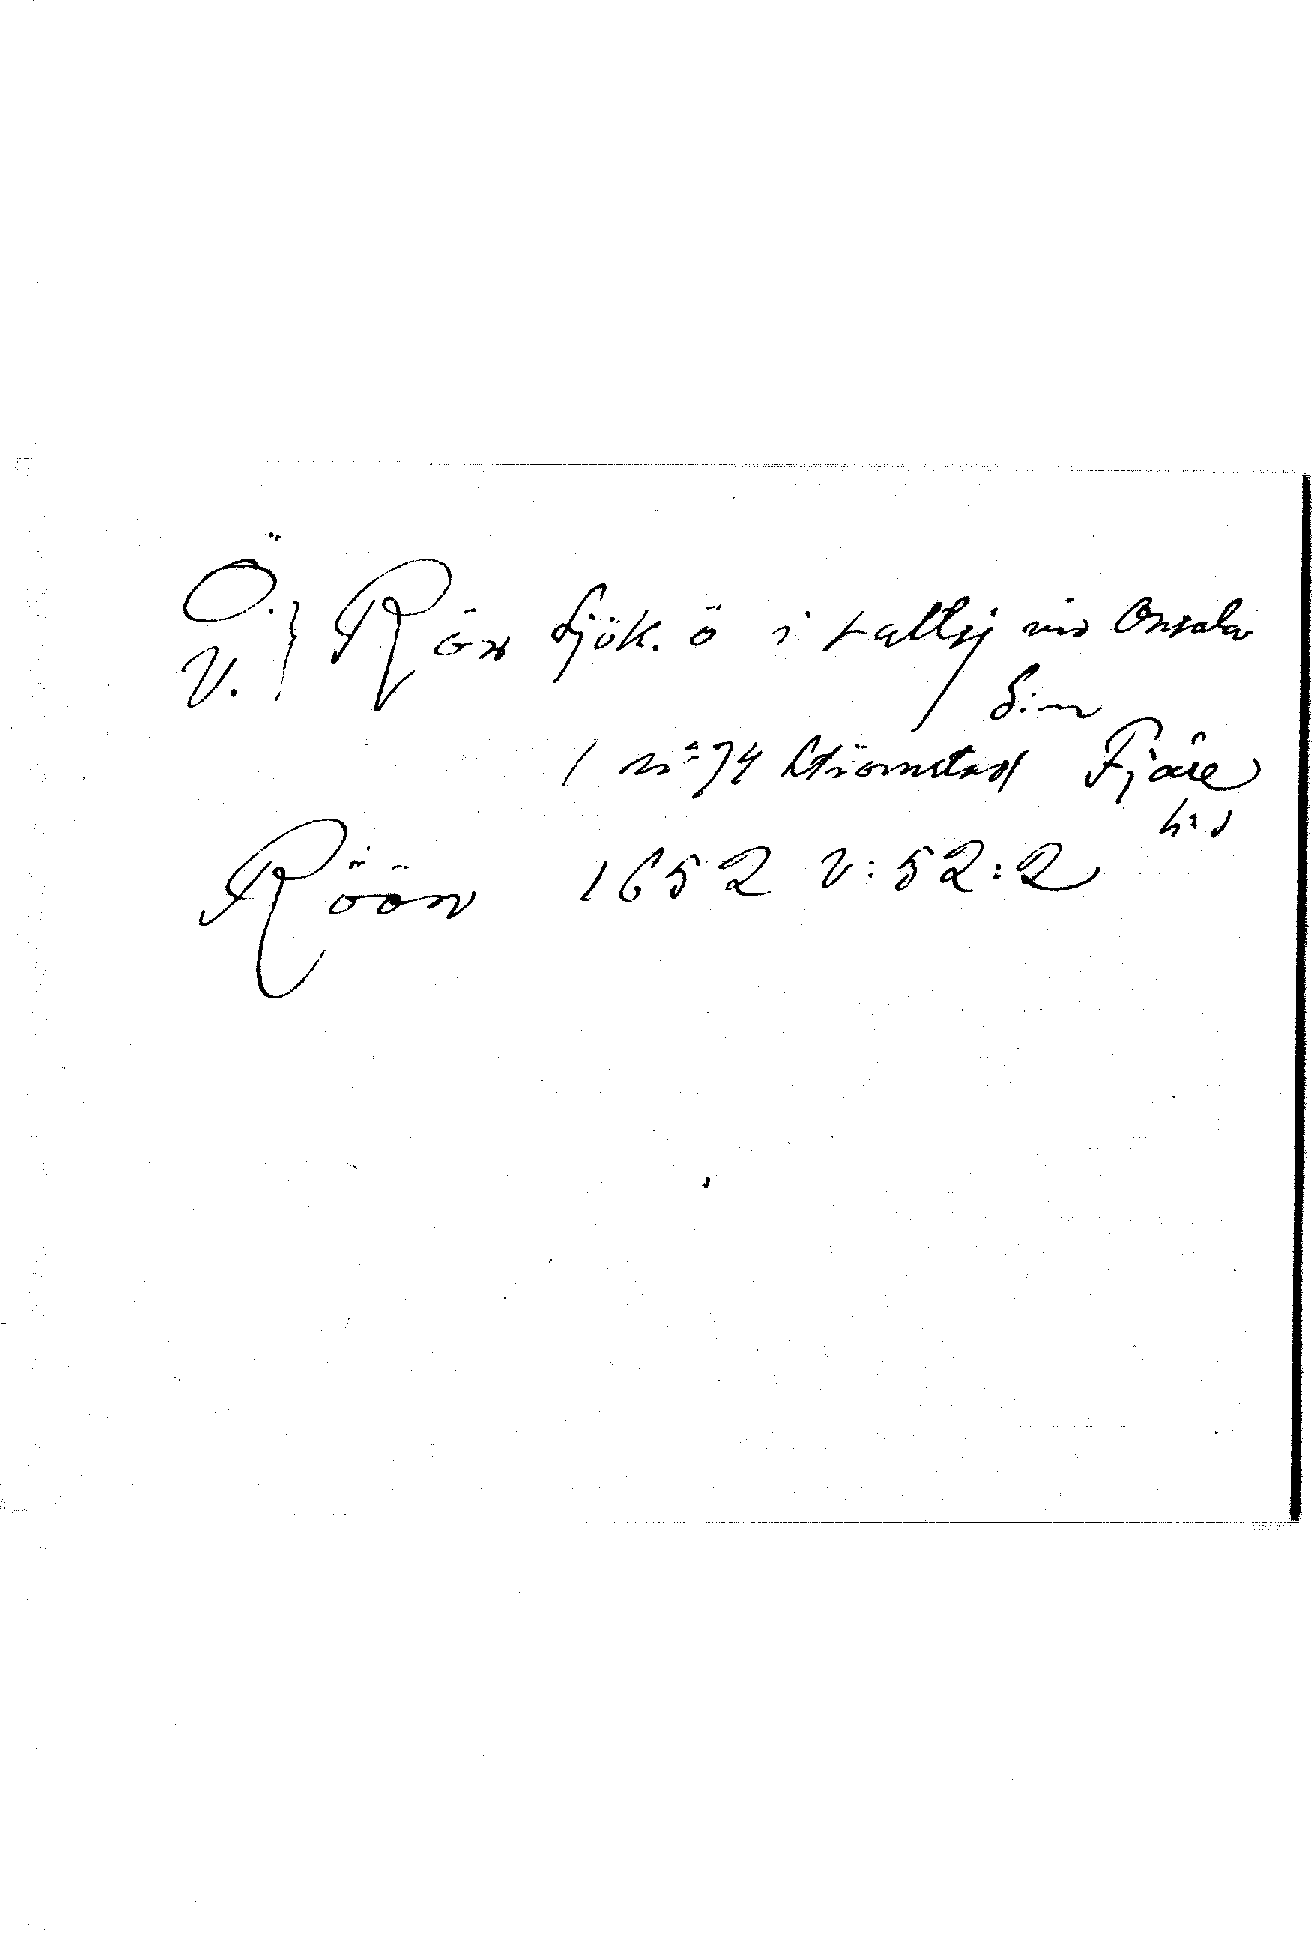 Ö.
V. } Rön Sjök. ö i Kattej vid Onsala
S:n
1 nº 74 Strömstad Fjäre
hd
Röön 1652 V:52:2